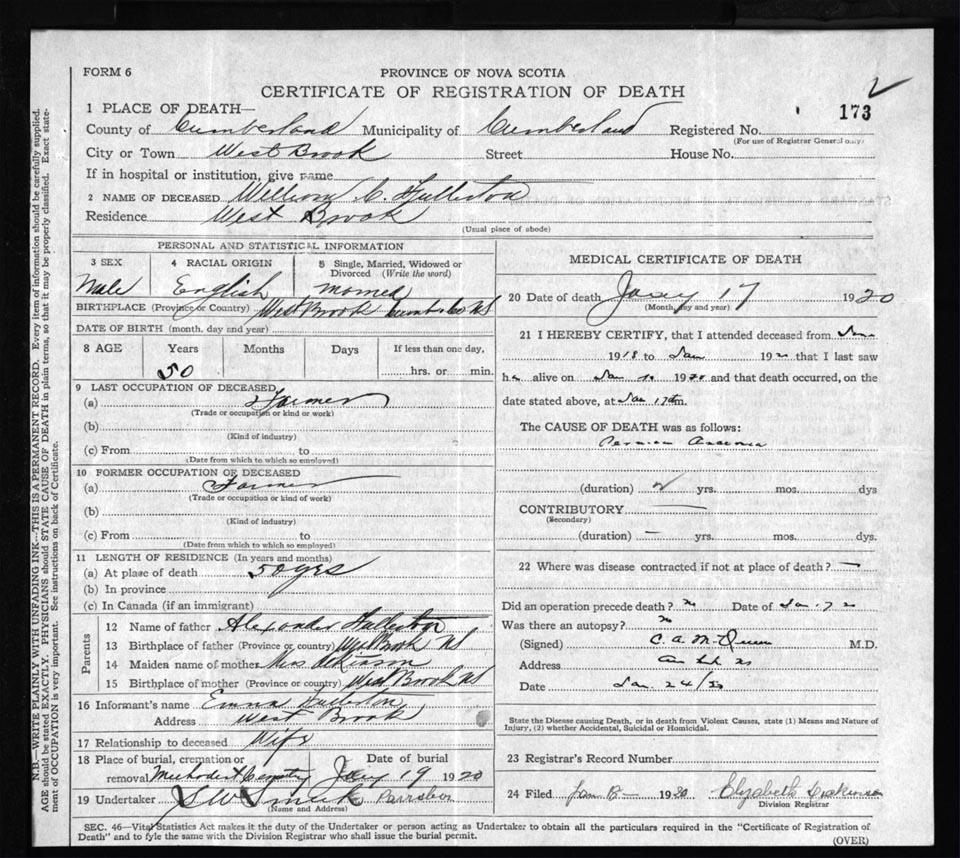 FORM 6
PROVINCE OF NOVA SCOTIA
CERTIFICATE OF REGISTRATION OF DEATH
2
173
1 PLACE OF DEATH—
County of Cumberland Municipality of Cumberland Registered No.
(For use of Registrar General only)
City or Town West Brook Street House No.
If in hospital or institution, give name
2 NAME OF DECEASED William C. Fullerton
Residence West Brook
(Usual place of abode)
PERSONAL AND STATISTICAL INFORMATION
3 SEX 4 RACIAL ORIGIN 5 Single, Married, Widowed or Divorced (Write the word)
Male English
BIRTHPLACE (Province or Country) West Brook Cumb. Co NS
DATE OF BIRTH (month, day and year)
8 AGE Years Months Days If less than one day,
50 hrs. or min.
9 LAST OCCUPATION OF DECEASED
(a) Farmer
(Trade or occupation or kind or work)
(b)
(Kind of industry)
(c) From to
(Date from which to which so employed)
10 FORMER OCCUPATION OF DECEASED
(a) Farmer
(Trade or occupation or kind of work)
(b)
(Kind of industry)
(c) From to
(Date from which to which so employed)
11 LENGTH OF RESIDENCE (In years and months)
(a) At place of death 50 yrs
(b) In province
(c) In Canada (if an immigrant)
Parents
12 Name of father Alexander Fullerton
13 Birthplace of father (Province or country) West Brook NS
14 Maiden name of mother Miss
15 Birthplace of mother (Province or country) West Brook NS
16 Informant's name Emma Fullerton
Address West Brook
17 Relationship to deceased Wife
18 Place of burial, cremation or removal Methodist Cemetry Date of burial Jany 19 1920
19 Undertaker Parrsboro
(Name and Address)
MEDICAL CERTIFICATE OF DEATH
20 Date of death Jany 17 1920
(Month, day and year)
21 I HEREBY CERTIFY, that I attended deceased from Jan
1918 to Jan 192 that I last saw
h alive on Jan 1920 and that death occurred, on the
date stated above, at Jan 17 m.
The CAUSE OF DEATH was as follows:
Pernicious Anaemia
(duration) 2 yrs. mos. dys
CONTRIBUTORY
(Secondary)
(duration) — yrs. mos. dys.
22 Where was disease contracted if not at place of death? —
Did an operation precede death? no Date of Jan
Was there an autopsy? no
(Signed) C. A. M. D.
Address
Date Jan. 24/20
State the Disease causing Death, or in death from Violent Causes, state (1) Means and Nature of
Injury, (2) whether Accidental, Suicidal or Homicidal.
23 Registrar's Record Number
24 Filed Jan 1920 Elizabeth
Division Registrar
SEC. 46—Vital Statistics Act makes it the duty of the Undertaker or person acting as Undertaker to obtain all the particulars required in the "Certificate of Registration of
Death" and to fyle the same with the Division Registrar who shall issue the burial permit.
(OVER)
N.B.—WRITE PLAINLY WITH UNFADING INK—THIS IS A PERMANENT RECORD. Every item of information should be carefully supplied.
AGE should be stated EXACTLY. PHYSICIANS should STATE CAUSE OF DEATH in plain terms, so that it may be properly classified. Exact statement of OCCUPATION is very important. See instructions on back of Certificate.